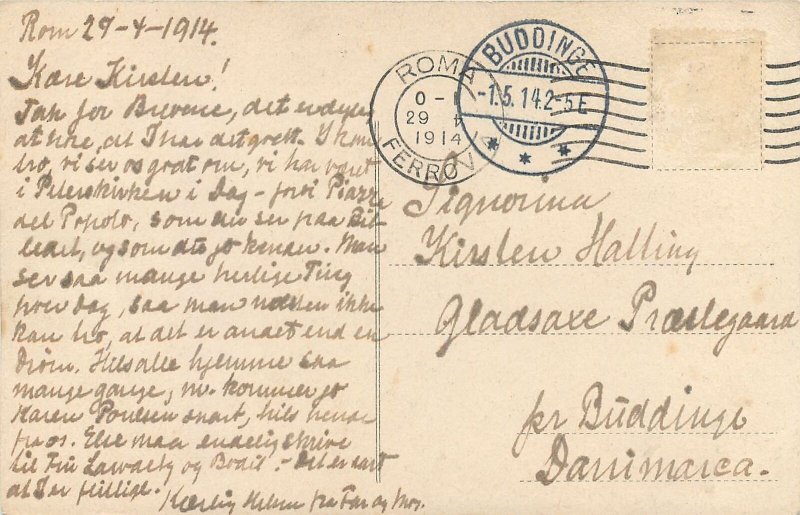 Rom 29-4-1914.
Kære Kirsten!
Tak for Brevene, det er dejligt
at høre, at I har det godt. I kan
tro, vi ser os godt om, vi har været
i Peterskirken i Dag - forbi Piazza
del Popolo, som du ser paa Bil-
ledet, og som du jo kender. Man
ser saa mange herlige Ting
hver Dag, saa man næsten ikke
kan tro, at det er andet end en
Drøm. Hils alle hjemme saa
mange gange, nu kommer jo
Karen Poulsen snart, hils hende
fra os. Else maa endelig skrive
til Fru Lawaetz og Bodil. - Det er rart
at I er flittige.
Kærlig Hilsen fra Far og Mor.
ROMA
0 -
29 4
1914
FERROVIA
BUDDINGE
-1.5.14.2-5E
Signorina
Kirsten Halling
Gladsaxe Præstegaard
pr Buddinge
Danimarca.